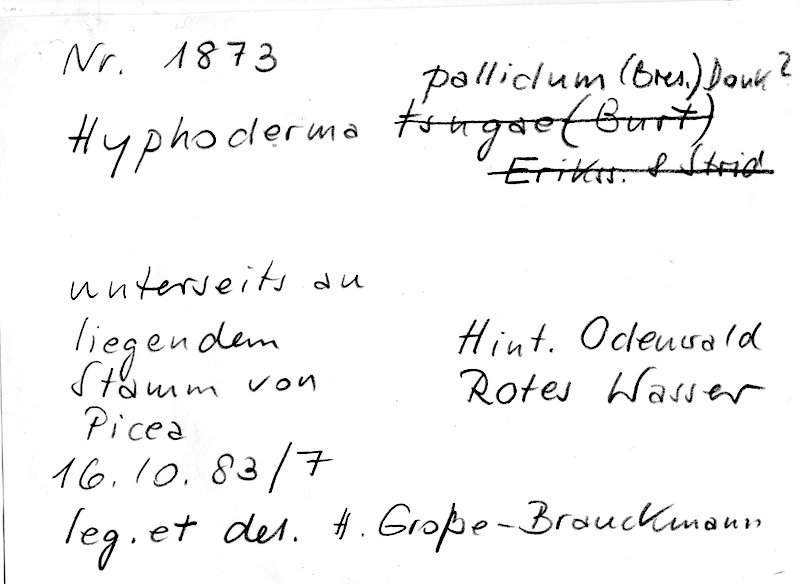 Nr. 1873
pallidum (Bres.) Donk?
Hyphoderma tsugae (Burt)
Erikss. & Strid
unterseits an
liegendem
Stamm von
Picea
Hint. Odenwald
Rotes Wasser
16.10.83/7
leg. et det. H. Große-Brauckmann